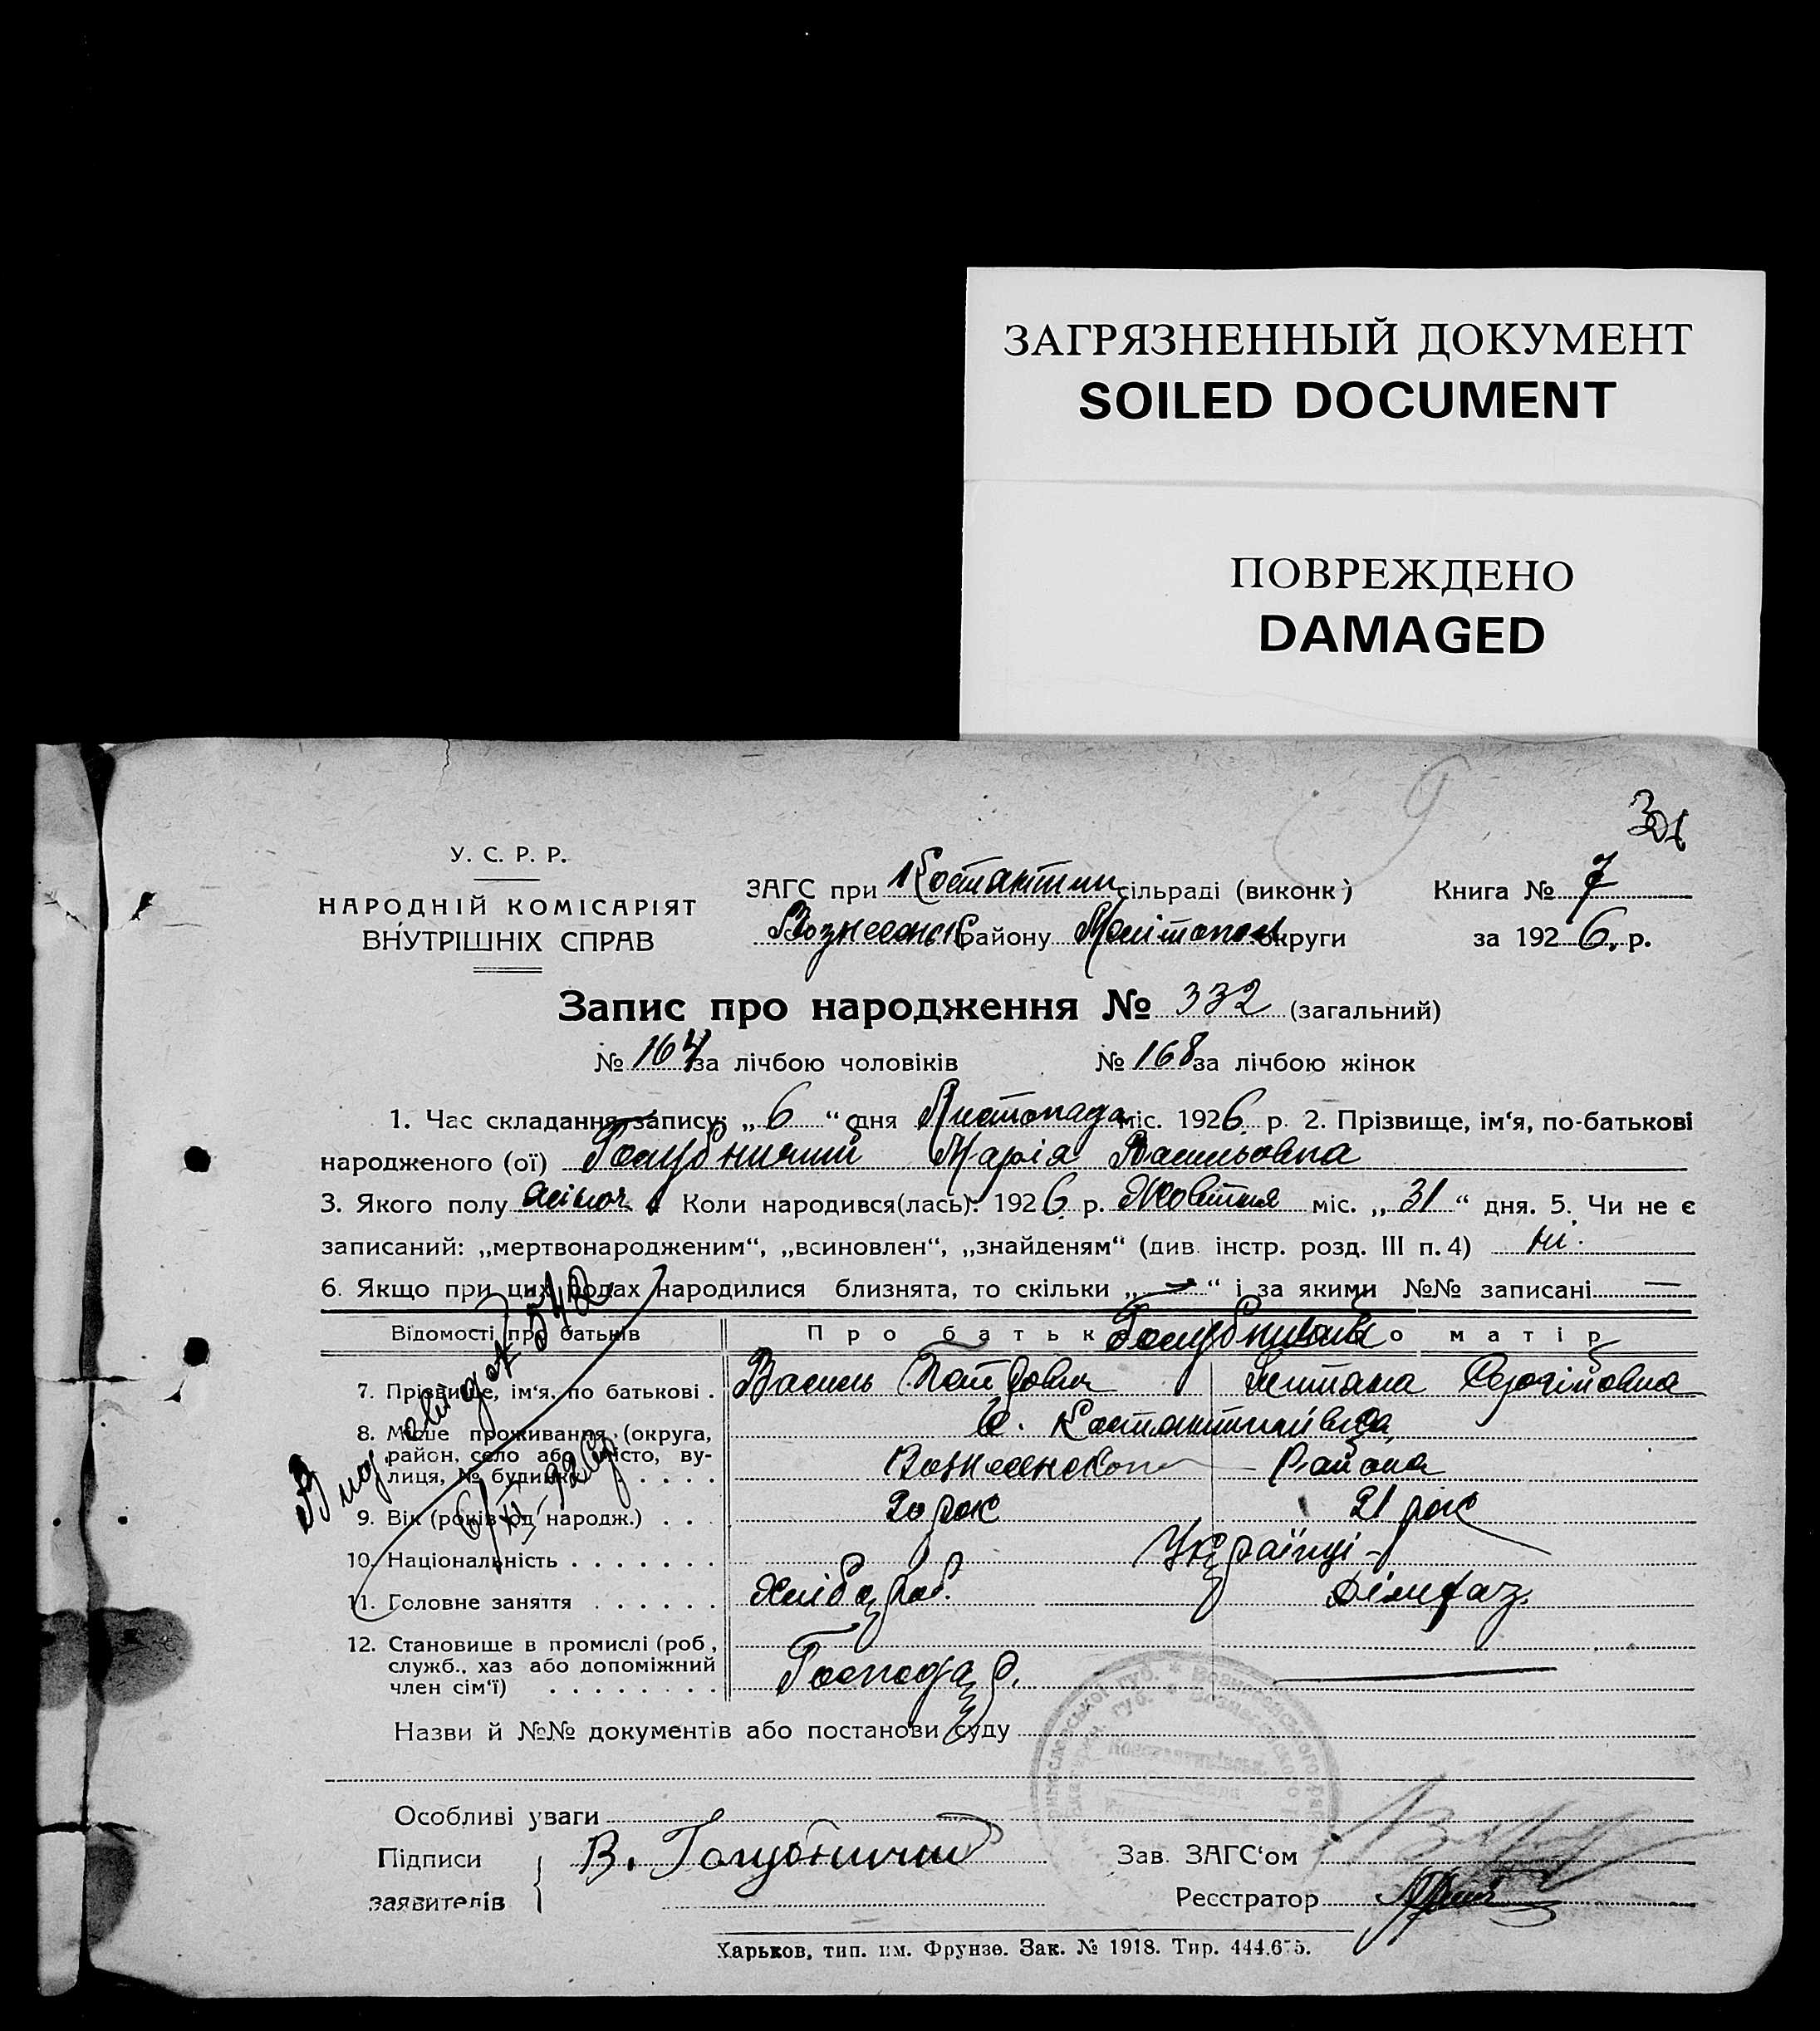 ЗАГРЯЗНЕННЫЙ ДОКУМЕНТ
SOILED DOCUMENT
ПОВРЕЖДЕНО
DAMAGED
У. С. Р. Р.
НАРОДНІЙ КОМІСАРІЯТ
ВНУТРІШНІХ СПРАВ
ЗАГС при Костянтин сільраді (виконк) Книга № 7
Вознесенськ району Мелітопол округи за 1926. р.
Запис про народження № 332 (загальний)
№ 164 за лічбою чоловіків № 168 за лічбою жінок
1. Час складання запису: „ 6 “ дня Листопада міс. 1926. р. 2. Прізвище, ім'я, по-батькові
народженого (ої) Голубничий Марія Васильовна
3. Якого полу жіноч. Коли народився(лась): 1926. р. Жовтня міс. „ 31 “ дня. 5. Чи не є
записаний: „мертвонародженим“, „всиновлен“, „знайденям“ (див. інстр. розд. III п. 4) ні.
6. Якщо при цих родах народилися близнята, то скільки „ — “ і за якими №№ записані —
Відомості про батьків Про батька Голубничий Про матір
7. Прізвище, ім'я, по батькові . Василь Сергійовна
8. Місце проживання (округа, с. Костянтинівка
район, село або місто, ву- Вознесенского Района
лиця, № будинку . . . . .
9. Вік (років од народж.) . . 20 рок 21 рок
10. Національність . . . . . . . Українці -
11. Головне заняття . . . . . . Хлібороб.
12. Становище в промислі (роб.,
служб., хаз або допоміжний Господар. —
член сім'ї) . . . . . . . .
Назви й №№ документів або постанови суду
Особливі уваги
Підписи В. Голубничий Зав. ЗАГС'ом
заявителів Реєстратор
Харьков, тип. им. Фрунзе. Зак. № 1918. Тир. 444.675.